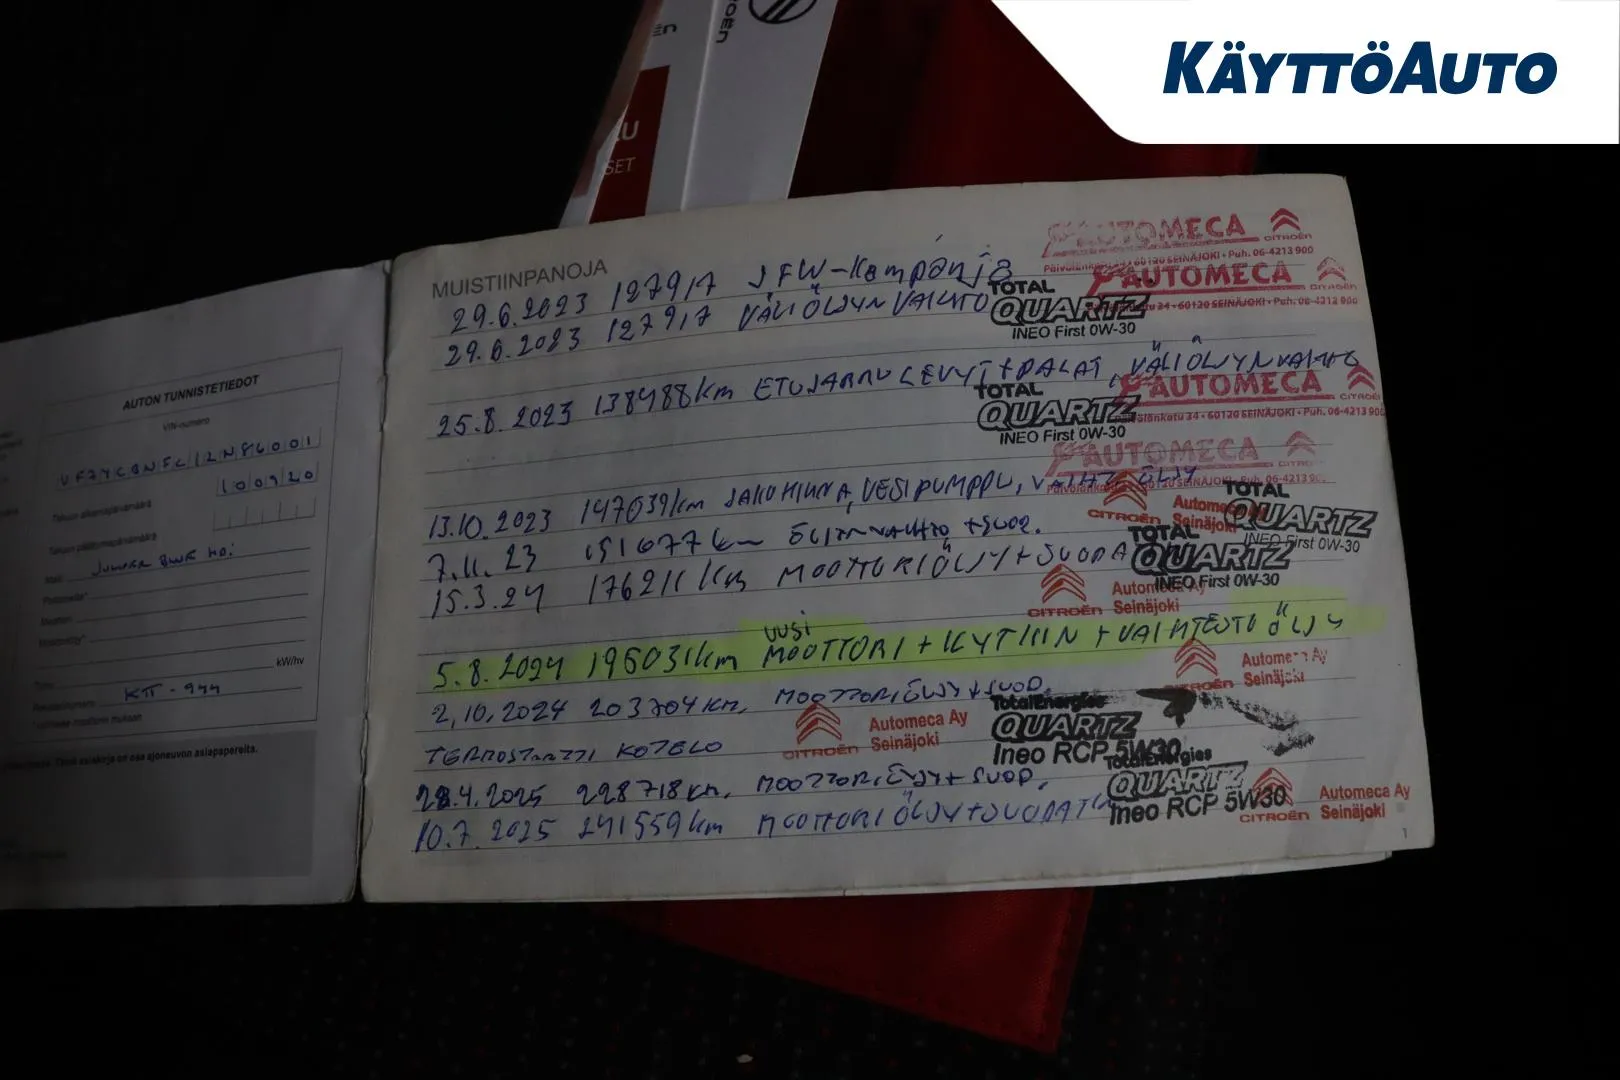 KÄYTTÖAUTO
CITROËN
SET
AUTON TUNNISTETIEDOT
VIN-numero
100920
Takuun alkamispäivämäärä
Takuun päättymispäivämäärä
Malli
kW/hv
KTT-944
Tämä asiakirja on osa ajoneuvon asiapapereita.
MUISTIINPANOJA
29.6.2023 127917 JFW-Kampanja
AUTOMECA CITROËN
Päivölänkatu 34 • 60120 SEINÄJOKI • Puh. 06-4213 900
29.6.2023 127917 VÄLIÖLJYNVAIHTO
TOTAL QUARTZ INEO First 0W-30
AUTOMECA
Päivölänkatu 34 • 60120 SEINÄJOKI • Puh. 06-4213 900
25.8.2023 138488km ETUJARRU LEVYT+PALAT, VÄLIÖLJYNVAIHTO
TOTAL QUARTZ INEO First 0W-30
AUTOMECA CITROËN
Päivölänkatu 34 • 60120 SEINÄJOKI • Puh. 06-4213 900
AUTOMECA CITROËN
Päivölänkatu 34 • 60120 SEINÄJOKI • Puh. 06-4213
13.10.2023 147639km JAKOHIHNA, VESIPUMPPU, VAIHT. ÖLJY
CITROËN Automeca Seinäjoki
TOTAL QUARTZ INEO First 0W-30
7.11.23 151677km ÖLJYNVAIHTO +SUOD.
TOTAL QUARTZ INEO First 0W-30
15.3.24 176211km MOOTTORIÖLJY+SUODA
CITROËN Automeca Ay Seinäjoki
5.8.2024 196031km UUSI MOOTTORI + KYTKIN + VAIHTEISTO ÖLJY
CITROËN Automeca Ay Seinäjoki
2.10.2024 203704km, MOOTTORIÖLJY+SUOD,
TERMOSTAATTI KOTELO
CITROËN Automeca Ay Seinäjoki
TotalEnergies QUARTZ Ineo RCP 5W30
28.4.2025 228718km, MOOTTORIÖLJY+SUOD,
TotalEnergies QUARTZ Ineo RCP 5W30
CITROËN Automeca Ay Seinäjoki
10.7.2025 241559km MOOTTORIÖLJY+SUODATIN
1